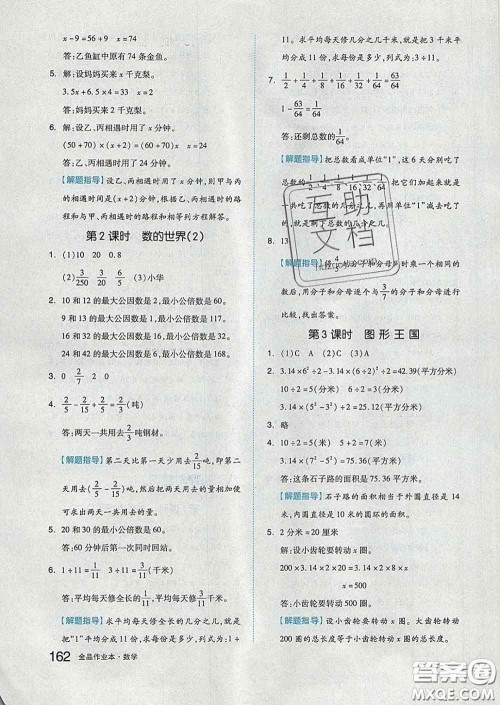 x－9＝56＋9　x＝74
答：乙鱼缸中原有 74 条金鱼。
5. 解：设妈妈买来 x 千克梨。
3.5x＋6.5×4＝33　x＝2
答：妈妈买来 2 千克梨。
6. 解：设乙、丙相遇时用了 x 分钟。
(50＋70)×(x＋2)＝(60＋70)x　x＝24
答：乙、丙相遇时用了 24 分钟。
【解题指导】设乙、丙相遇时用了 x 分钟，则甲与丙
的路程和是(x＋2)分钟，根据甲、丙相遇时的路程
和与乙、丙相遇时的路程和相等列方程解答。
第 2 课时　数的世界(2)
1. (1)10　20　0.8
(2) 3/250　2/3　(3)小华
2. 10 和 12 的最大公因数是 2，最小公倍数是 60。
9 和 13 的最大公因数是 1，最小公倍数是 117。
16 和 42 的最大公因数是 2，最小公倍数是 336。
24 和 32 的最大公因数是 8，最小公倍数是 96。
3. 0　2/7
4. 2/5－2/15＋2/5＝2/3(吨)
答：两天一共用去 2/3 吨钢材。
【解题指导】第二天比第一天少用去 2/15 吨，即第二
天用去(2/5－2/15)吨，再加上第一天用去的 2/5 吨，就
可以求出两天一共用去的吨数。
5. 20 和 30 的最小公倍数是 60。
答：60 分钟后第一次同时回站。
6. 1÷11＝1/11　3÷11＝3/11(千米)
答：平均每天修全长的 1/11，平均每天修 3/11 千米。
【解题指导】求平均每天修全长的几分之几，就是
把全长看成单位"1"，求每份是多少，列式为 1÷
162　金品作业本·数学
11。求平均每天修几分之几千米，就是把 3 千米平
均分成 11 份，求每份是多少，列式为 3÷11。
7. 1/2＋1/4＋1/8＋1/16＋1/32＋1/64＝63/64
1－63/64＝1/64
答：还剩总数的 1/64。
【解题指导】把总数看成单位"1"，这 6 天分别吃了
总数的 1/2、1/4、1/8、1/16、1/32、1/64，
共吃了总数的几分之几，再用单位"1"减去吃了的
就是剩下总数的几分之几。
8. 13
数，用分子和分母逐个与 3/7 的分子和分母进行比
较，得出答案。
第 3 课时　图形王国
1. (1)C　(2)A　(3)A
2. 3.14×6²÷2－3.14×(6÷2)²÷2＝42.39(平方分米)
10÷2＝5(分米)
3.14×(5²－2²)＝65.94(平方分米)
3. 略
4. 10÷2＝5(米)　5＋2＝7(米)
3.14×(7²－5²)＝75.36(平方米)
答：这条石子路的面积是 75.36 平方米。
【解题指导】石子路的面积相当于内圆直径是 14
米，内圆直径是 10 米的圆环的面积。
5. 2 分米＝20 厘米
解：设小齿轮要转动 x 圈。
200×3.14×20＝3.14×8x
x＝500
答：小齿轮要转动 500 圈。
【解题指导】大、小齿轮转动的总长度相等。大齿轮转动
200 圈的总长度等于小齿轮转动 x 圈的总长度。
互助
文档
答案圈
MXQE.COM